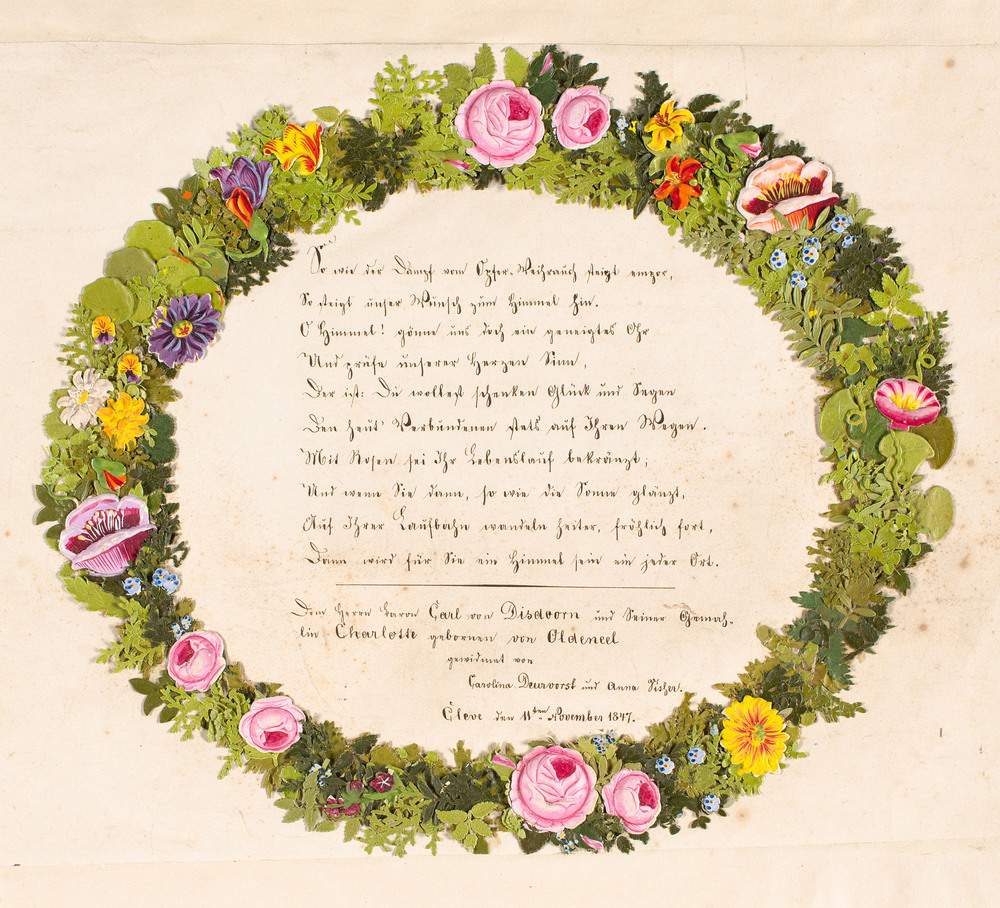 So wie der Dampf vom Opfer-Weihrauch steigt empor,
So steigt unser Wunsch zum Himmel hin.
O Himmel! gönne uns doch ein geneigtes Ohr
Und prüfe unserer Herzen Sinn,
Der ist: Du wollest schenken Glück und Segen
Den heut' Verbundenen stets auf Ihren Wegen.
Mit Rosen sei Ihr Lebenslauf bekränzt;
Und wenn Sie dann, so wie die Sonne glänzt,
Auf Ihrer Laufbahn wandeln heiter, fröhlich fort,
Dann wird für Sie ein Himmel sein ein jeder Ort.
Dem Herrn Baron Carl von Disdvorn und Seiner Gemah-
lin Charlotte gebornen von Oldeneel
gewidmet von
Carolina Deurvorst und Anna Fischer.
Cleve den 11ten November 1847.